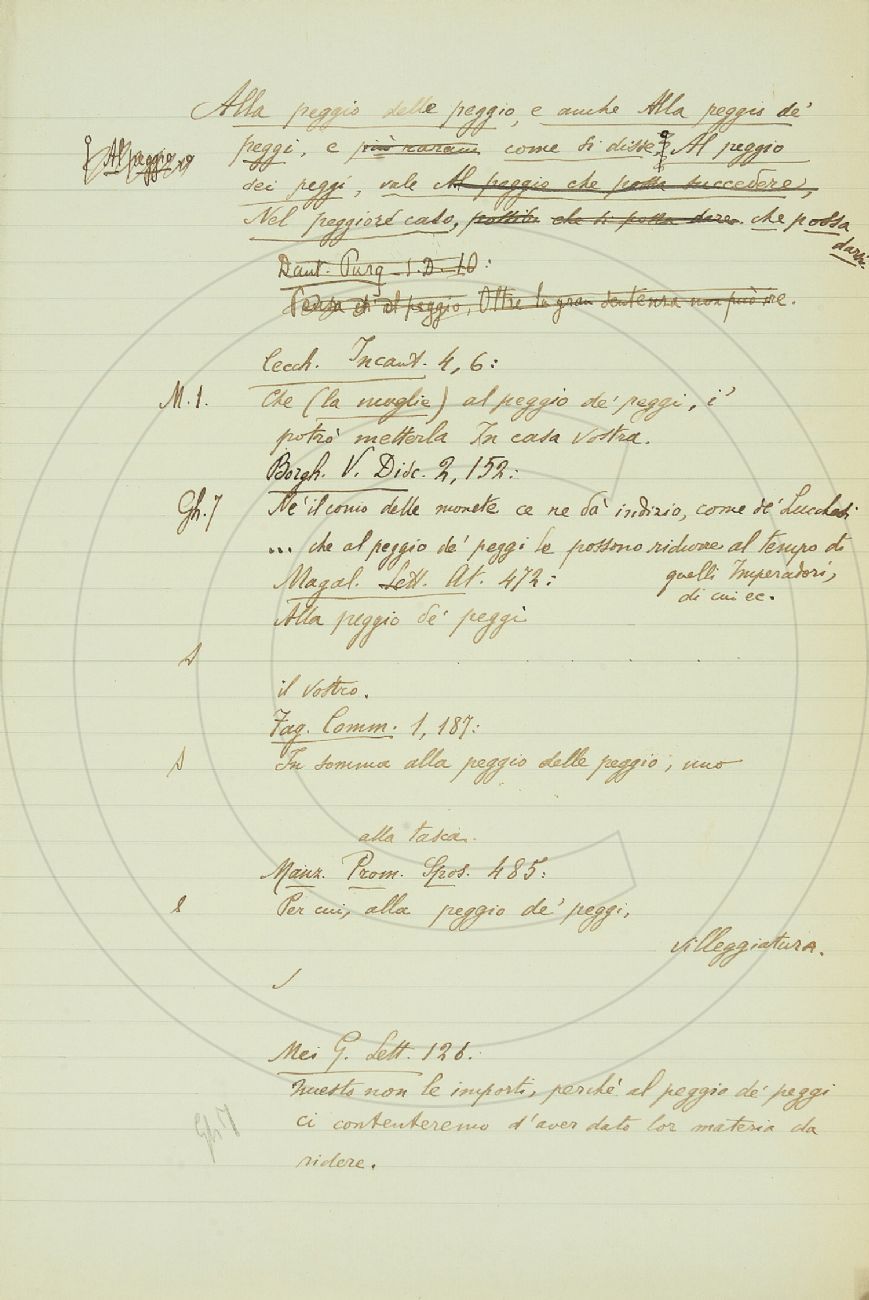 Alla peggio delle peggio, e anche Alla peggio de'
peggi, e più raram. come si disse, Al peggio
Al peggio
dei peggi, vale Al peggio che possa succedere,
Nel peggiore caso, che si possa dare. che possa
darsi.
Dant. Purg. 1. D. 10:
Pensa ch'al peggio, Oltre la gran sentenza non può ire.
Cecch. Incant. 4, 6:
M. 1. Che (la moglie) al peggio de' peggi, i'
potrò metterla In casa vostra.
Borgh. V. Disc. 2, 152:
Gh. 7 Nè il conio delle monete ce ne dà indizio, come de' Lucchesi
... che al peggio de' peggi le possono ridurre al tempo di
quelli Imperadori,
di cui ec.
Magal. Lett. At. 472:
Alla peggio de' peggi
il vostro.
Fag. Comm. 1, 187:
In somma alla peggio delle peggio, uno
alla tasca.
Manz. Prom. Spos. 485:
Per cui, alla peggio de' peggi,
villeggiatura.
Mei G. Lett. 126:
Questo non le importi, perché al peggio de' peggi
ci contenteremo d'aver dato lor materia da
Gh. 7
ridere.